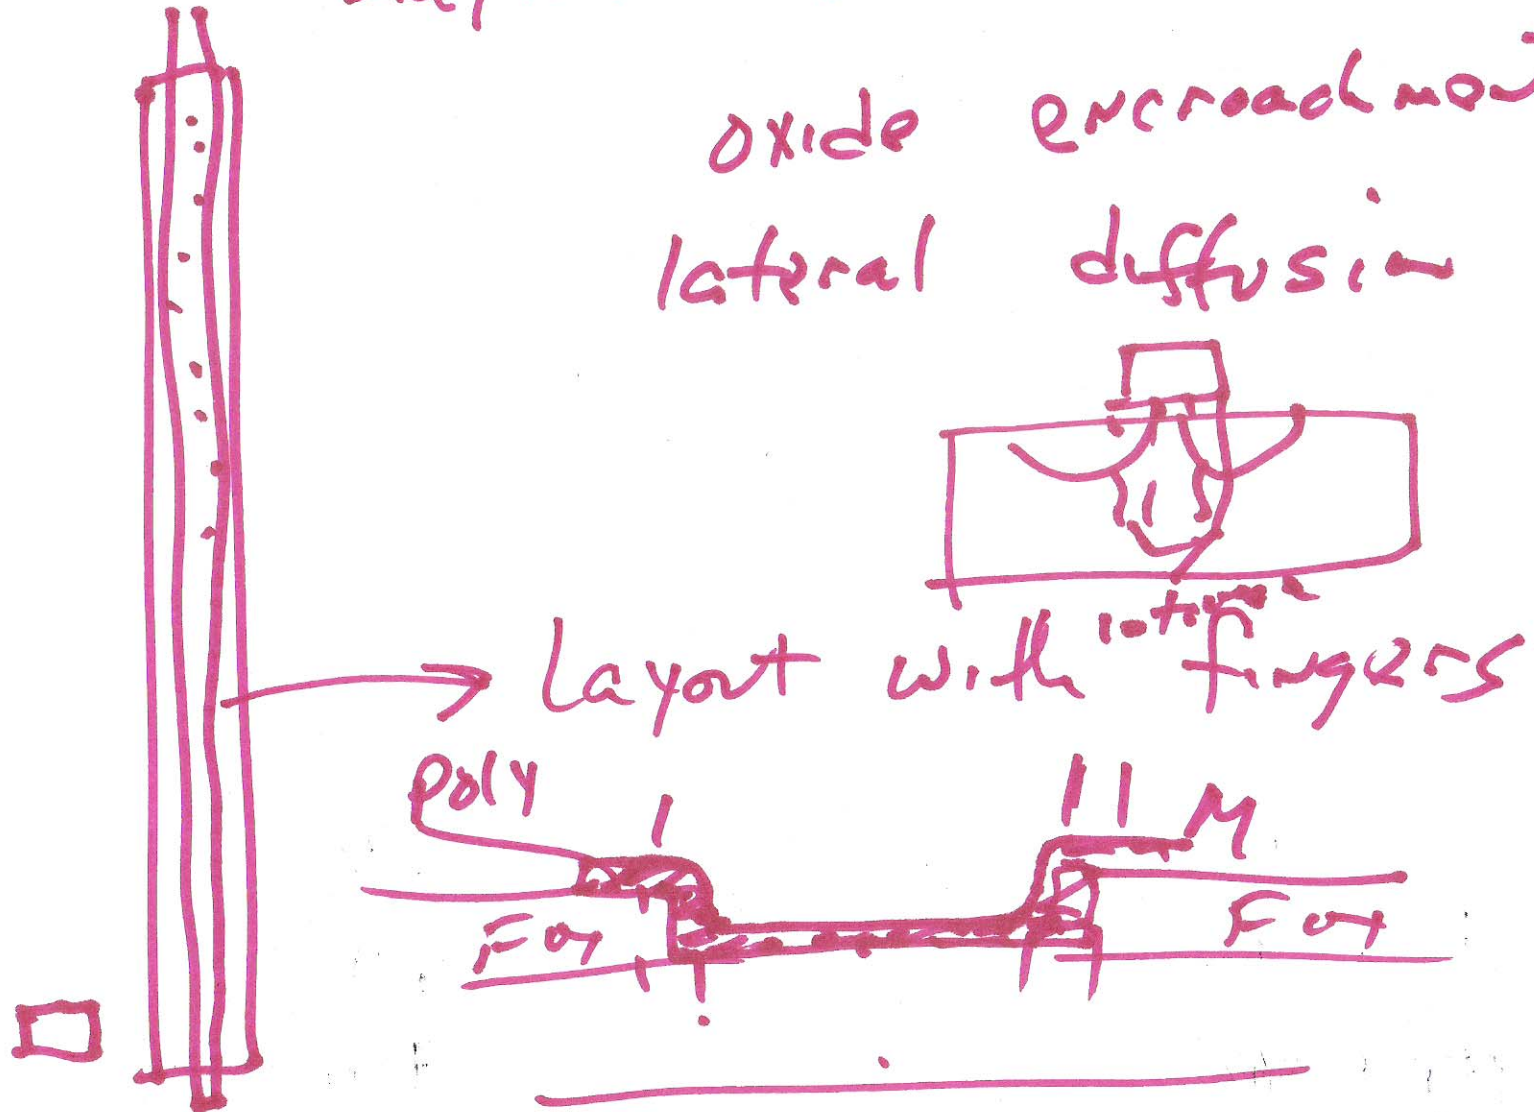 oxide encroachmen
lateral diffusion
Layout with fingers
poly
M
Fox Fox